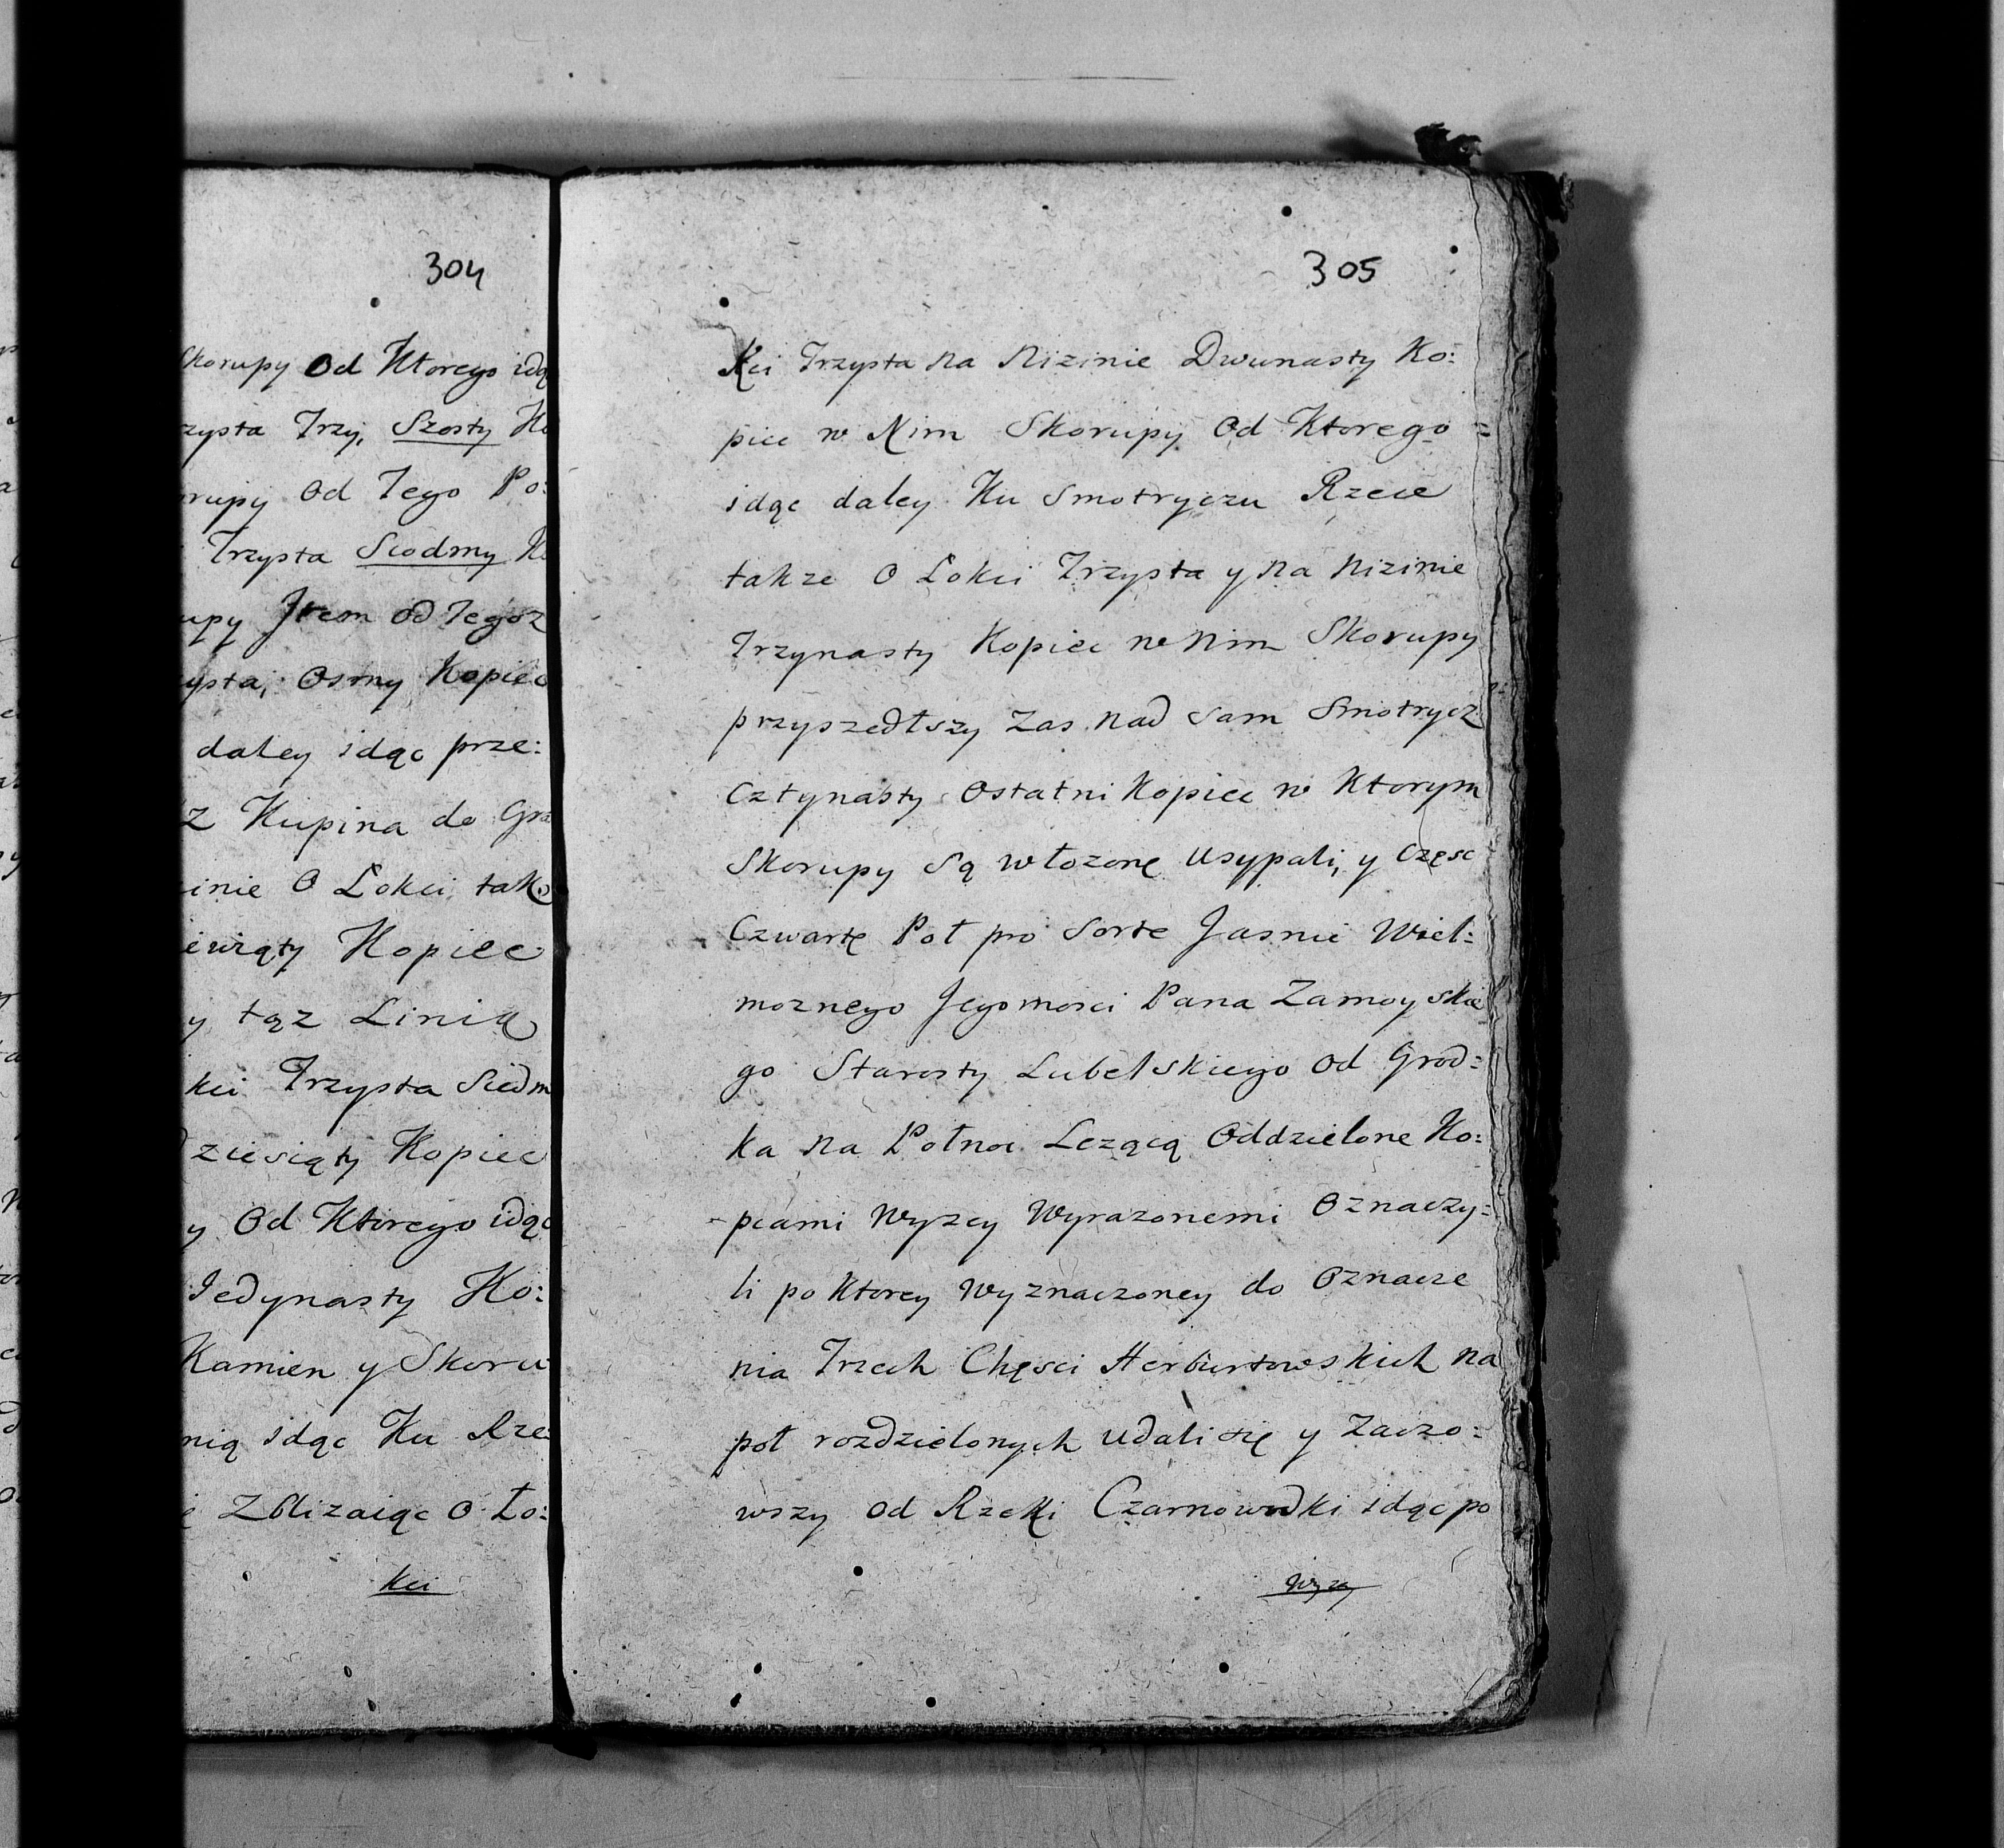 304
Skorupy Od Ktorego idą
zysta Trzy, Szosty Ko
orupy Od Tego Po:
Trzysta Siodmy K
upy Jtem od Tegoz
ysta, Osmy Kopiec
daley idąc prze:
z Kupina do Gra
inie O Lokci tak
ewiąty Kopiec
y tąz Linią
kci Trzysta Siedm
dziesiąty Kopiec
y Od Ktorego idąc
Jedynasty Ko:
Kamien y Skoru
nią idąc Ku Rze:
Zblizaiąc O Ło:
kci
305
Kci Trzysta na Nizinie Dwunasty Ko:
piec w Nim Skorupy Od Ktorego =
idąc daley Ku Smotryczu Rzece
takze O Lokci Trzysta y na Nizinie
Trzynasty Kopiec w Nim Skorupy
przyszedłszy Zas nad sam Smotrycz
Cztynasty Ostatni Kopiec w Ktorym
Skorupy Są włozonę Usypali, y Częsc
Czwartę Poł pro Sorte Jasnie Wiel:
moznego Jegomosci Pana Zamoyskie
go Starosty Lubelskiego Od Grod:
ka na Połnoc Lezącą Oddzielone Ko:
pcami Wyzey Wyrazonemi Oznaczy:
li po Ktorey Wyznaczoney do Oznacze
nia Trzech Chęsci Herburtowskich na
poł rozdzielonych udali się y Zaczo:
wszy Od Rzeki Czarnowodki idąc po
wyzey